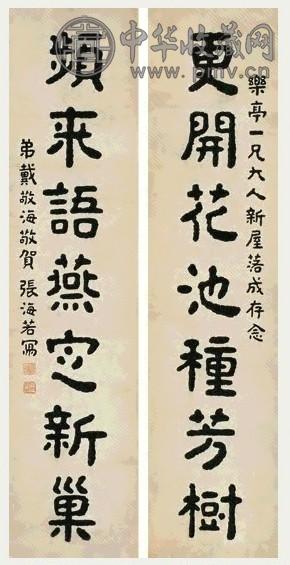 中华收藏网
樂亭一兄大人新屋落成存念
更開花池種芳樹
頻来語燕定新巢
弟戴敬海敬賀 張海若寫